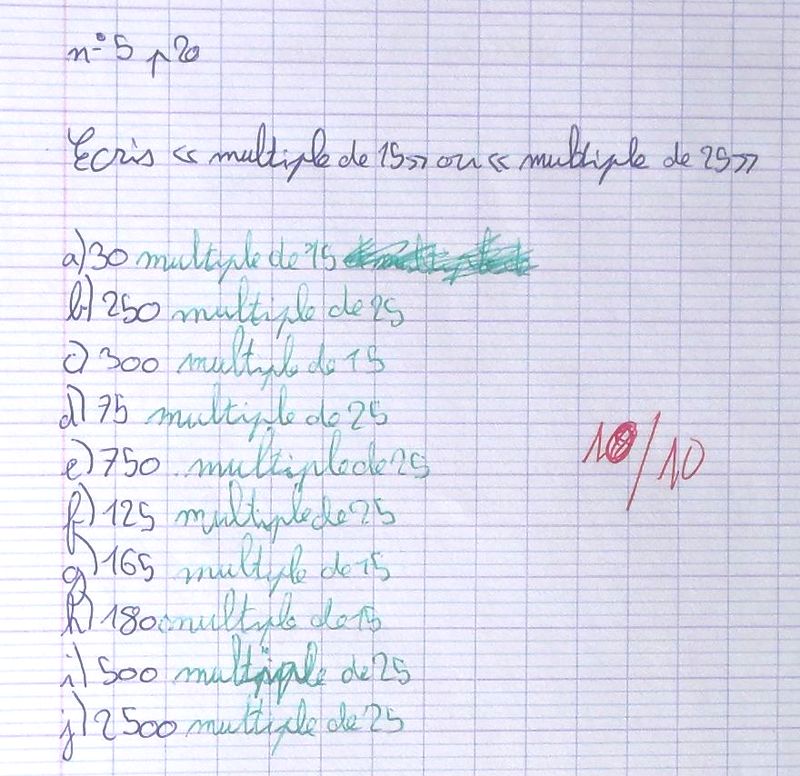 n° 5 p 20
Ecris « multiple de 15 » ou « multiple de 25 »
a) 30 multiple de 15
b) 250 multiple de 25
c) 300 multiple de 15
d) 75 multiple de 25
e) 750 multiple de 25
f) 125 multiple de 25
g) 165 multiple de 15
h) 180 multiple de 15
i) 500 multiple de 25
j) 2500 multiple de 25
10/10